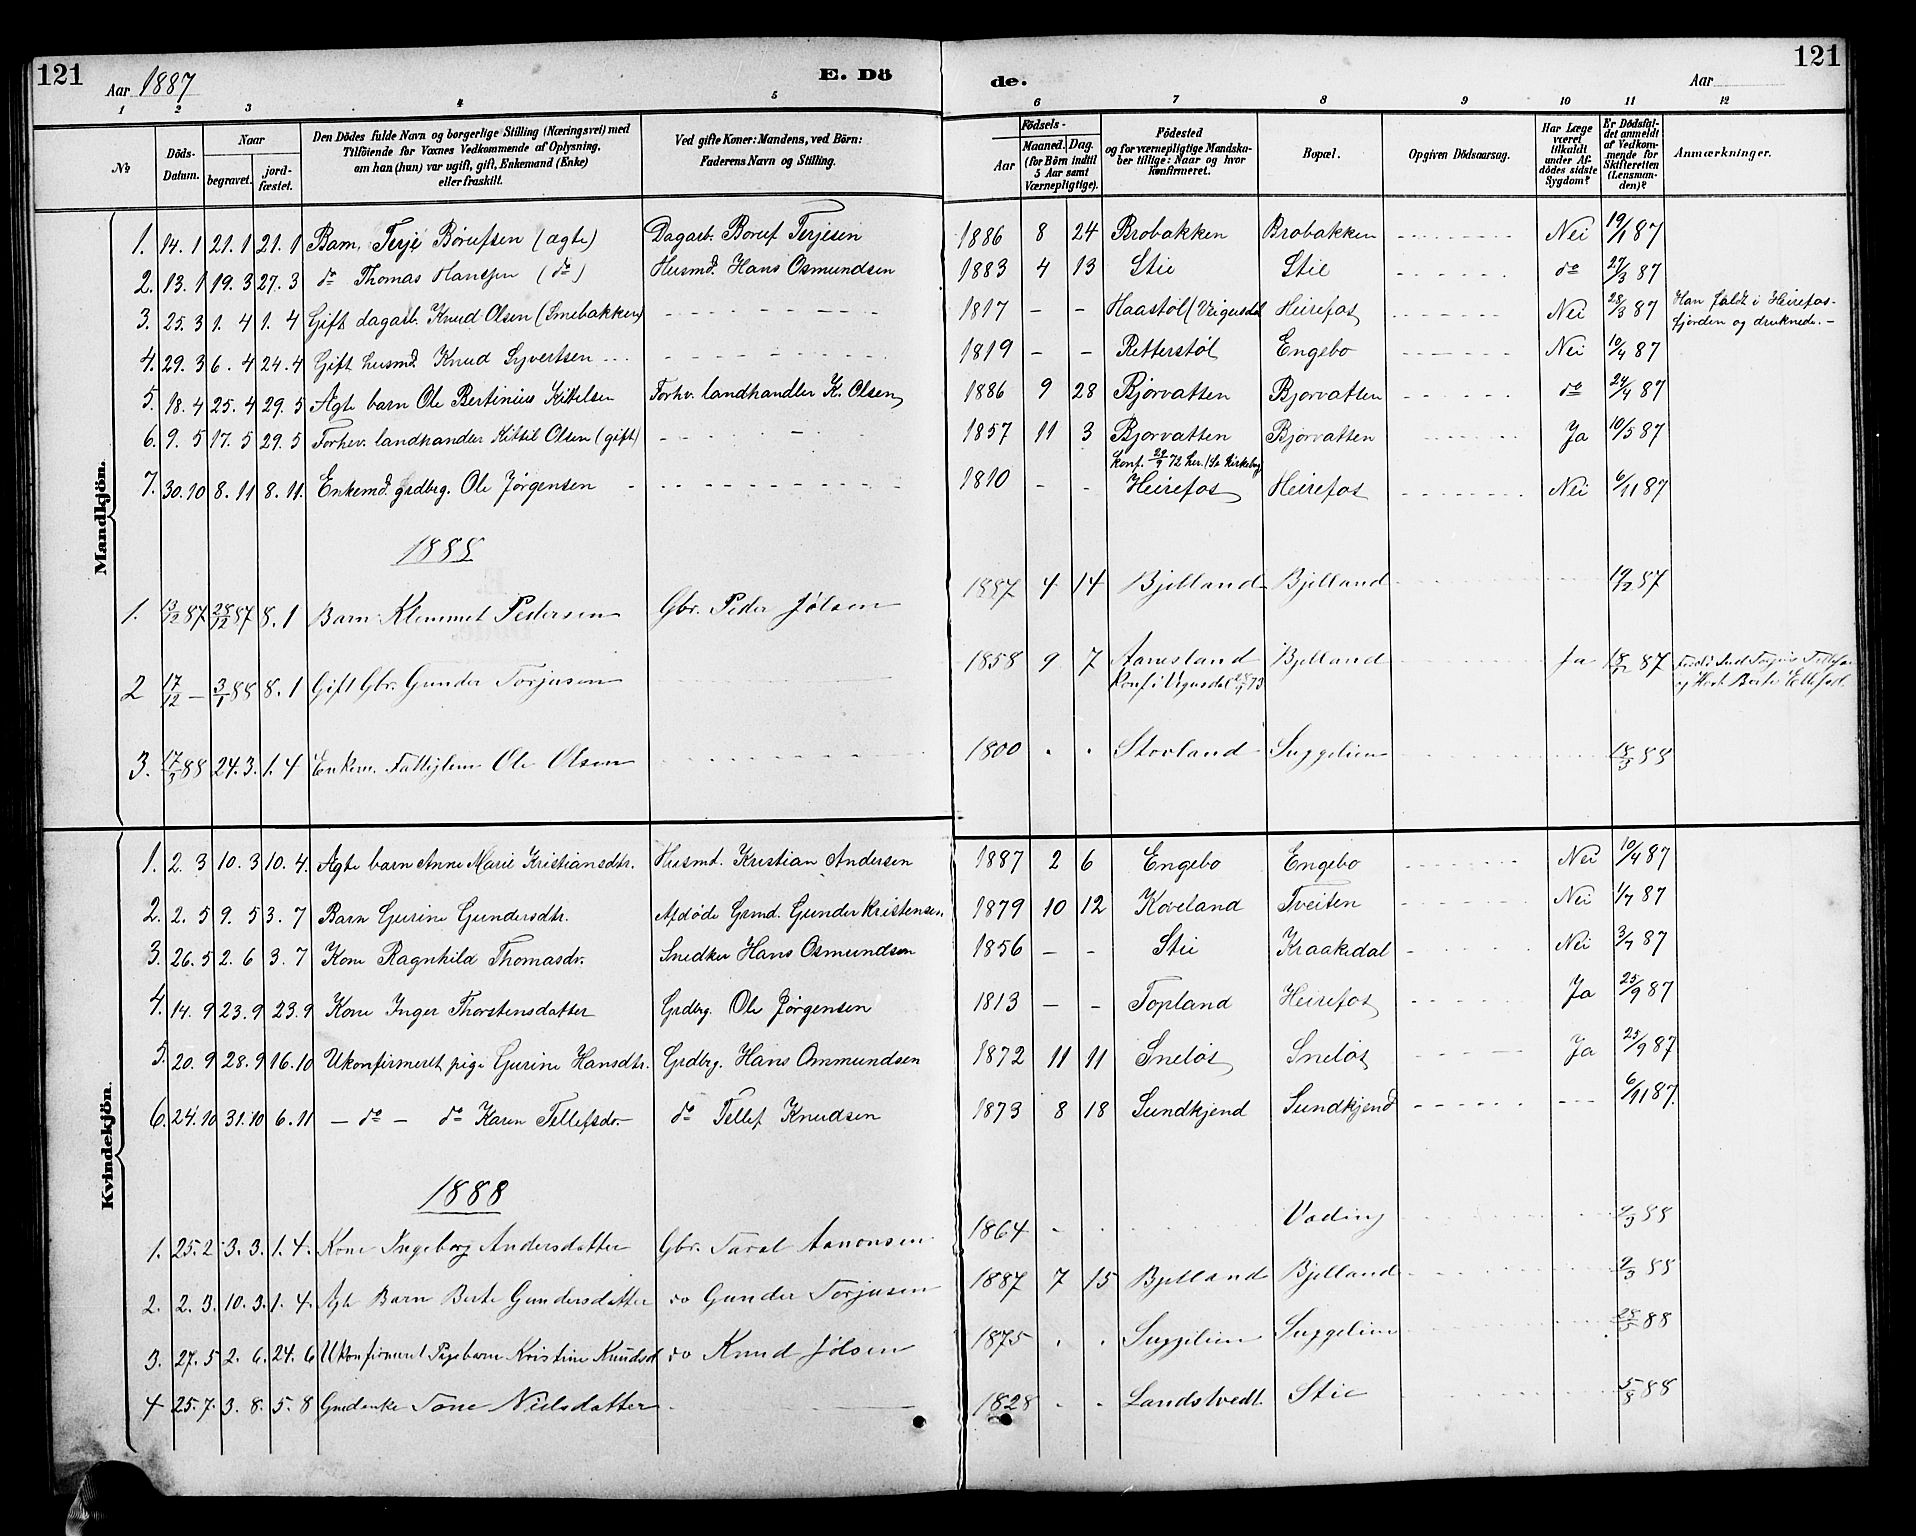 121
Aar 1887
E. Dö
de.
Aar
121
1 2 3 4 5 6 7 8 9 10 11 12
No
Döds-Datum.
Naar
begravet.
jord-fæstet.
Den Dödes fulde Navn og borgerlige Stilling (Næringsvei) med
Tilföiende for Voxnes Vedkommende af Oplysning,
om han (hun) var ugift, gift, Enkemand (Enke)
eller fraskilt.
Ved gifte Koner: Mandens, ved Börn:
Faderens Navn og Stilling.
Födsels-
Aar
Maaned. Dag.
(for Börn indtil
5 Aar samt
Værnepligtige).
Födested
og for værnepligtige Mandska-
ber tillige: Naar og hvor
konfirmeret.
Bopæl.
Opgiven Dödsaarsag.
Har Læge
været
tilkaldt
under Af-
dödes sidste
Sygdom?
Er Dödsfal-
det anmeldt
af Vedkom-
mende for
Skifteretten
(Lensman-
den)?
Anmærkninger.
Mandkjön.
1. 14. 1 21. 1 21. 1 Barn, Terje Børufsen (ægte) Dagarb. Boruf Terjesen 1886 8 24 Brobakken Brobakken Nei 19/1 87
2. 13. 1 19. 3 27. 3 do Thomas Hansen (do) Husmd. Hans Osmundsen 1883 4 13 Stie Stie do 27/3 87
3. 25. 3 1. 4 1. 4 Gift dagarb. Knud Olsen (Smebakken) 1817 - - Haastøl (Vegusdal Heirefos Nei 28/3 87 Han faldt i Heirefos-
fjorden og druknede. -
4. 29. 3 6. 4 24. 4 Gift husmd. Knud Syvertsen 1819 - - Retterstøl Engebo Nei 10/4 87
5. 18. 4 25. 4 29. 5 Ægte barn Ole Bertinius Kittelsen Forhv. landhandler K. Olsen 1886 9 28 Bjorvatten Bjorvatten do 24/4 87
6. 9. 5 17. 5 29. 5 Forhev. landhandler Kittil Olsen (gift) 1857 11 3 Bjorvatten Bjorvatten Ja 10/5 87
Konf. 29/9 72 her.
7. 30. 10 8. 11 8. 11. Enkemd. grdbrg. Ole Jørgensen 1810 - - Heirefos Heirefos Nei 6/11 87
1888
1. 13/12 87 28/12 87 8. 1 Barn Klemmet Pedersen Gbr. Peder Jølsen 1887 4. 14 Bjelland Bjelland 19/12 87
2 17/12 - 3/1 88 8. 1 Gift Gbr. Gunder Torjusen 1858 9 7 Aanesland Bjelland Ja 18/12 87
Konf i Vegusdal 73
3. 17/3 88 24. 3. 1. 4 Enkem. Fattiglem Ole Olsen 1800 Stovland Suggelien 18/3 88
Kvindekjön.
1. 2. 3 10. 3 10. 4. Ægte barn Anne Marie Kristiansdtr. Husmd. Kristian Andersen 1887 2 6 Engebo Engebo Nei 10/4 87
2. 2. 5 9. 5 3. 7 Barn Gurine Gundersdtr. Afdøde Grmd. Gunder Kristensen 1879 10 12 Koveland Tveiten Nei 1/7 87
3. 26. 5 2. 6 3. 7 Kone Ragnhild Thomasdr. Snedker Hans Osmundsen 1856 - - Stie Kraakedal Nei 3/7 87
4. 14. 9 23. 9 23. 9 Kone Inger Thorstensdatter Grdbrg. Ole Jørgensen 1813 - - Topland Heirefos Ja 25/9 87
5. 20. 9 28. 9 16. 10 Ukonfirmeret pige Gurine Hansdtr. Grdbrg. Hans Ommundsen 1872 11 11 Sneløs Sneløs Ja 25/9 87
6. 24. 10 31. 10 6. 11 - do - do Karen Tellefsdr. do Tellef Knudsen 1873 8 18 Sundkjend Sundkjend - - - 6/11 87.
1888
1. 25. 2 3. 3. 1. 4. Kone Ingeborg Andersdatter Gbr. Taral Aanonsen 1864 Vading 2/3 88
2. 2. 3. 10. 3. 1. 4. Ægte Barn Berte Gundersdatter do Gunder Torjusen 1887 7 15 Bjelland Bjelland 9/3 88
3. 27. 5 2. 6. 24. 6 Ukonfirmeret Pigebarn Kristine Knudsd do Knud Jølsen 1875 Suggelien Suggelien 28/5 88
4 25. 7. 3. 8. 5. 8 Grmdenke Tone Nielsdatter 1828 Landstvedt. Stie 5/8 88